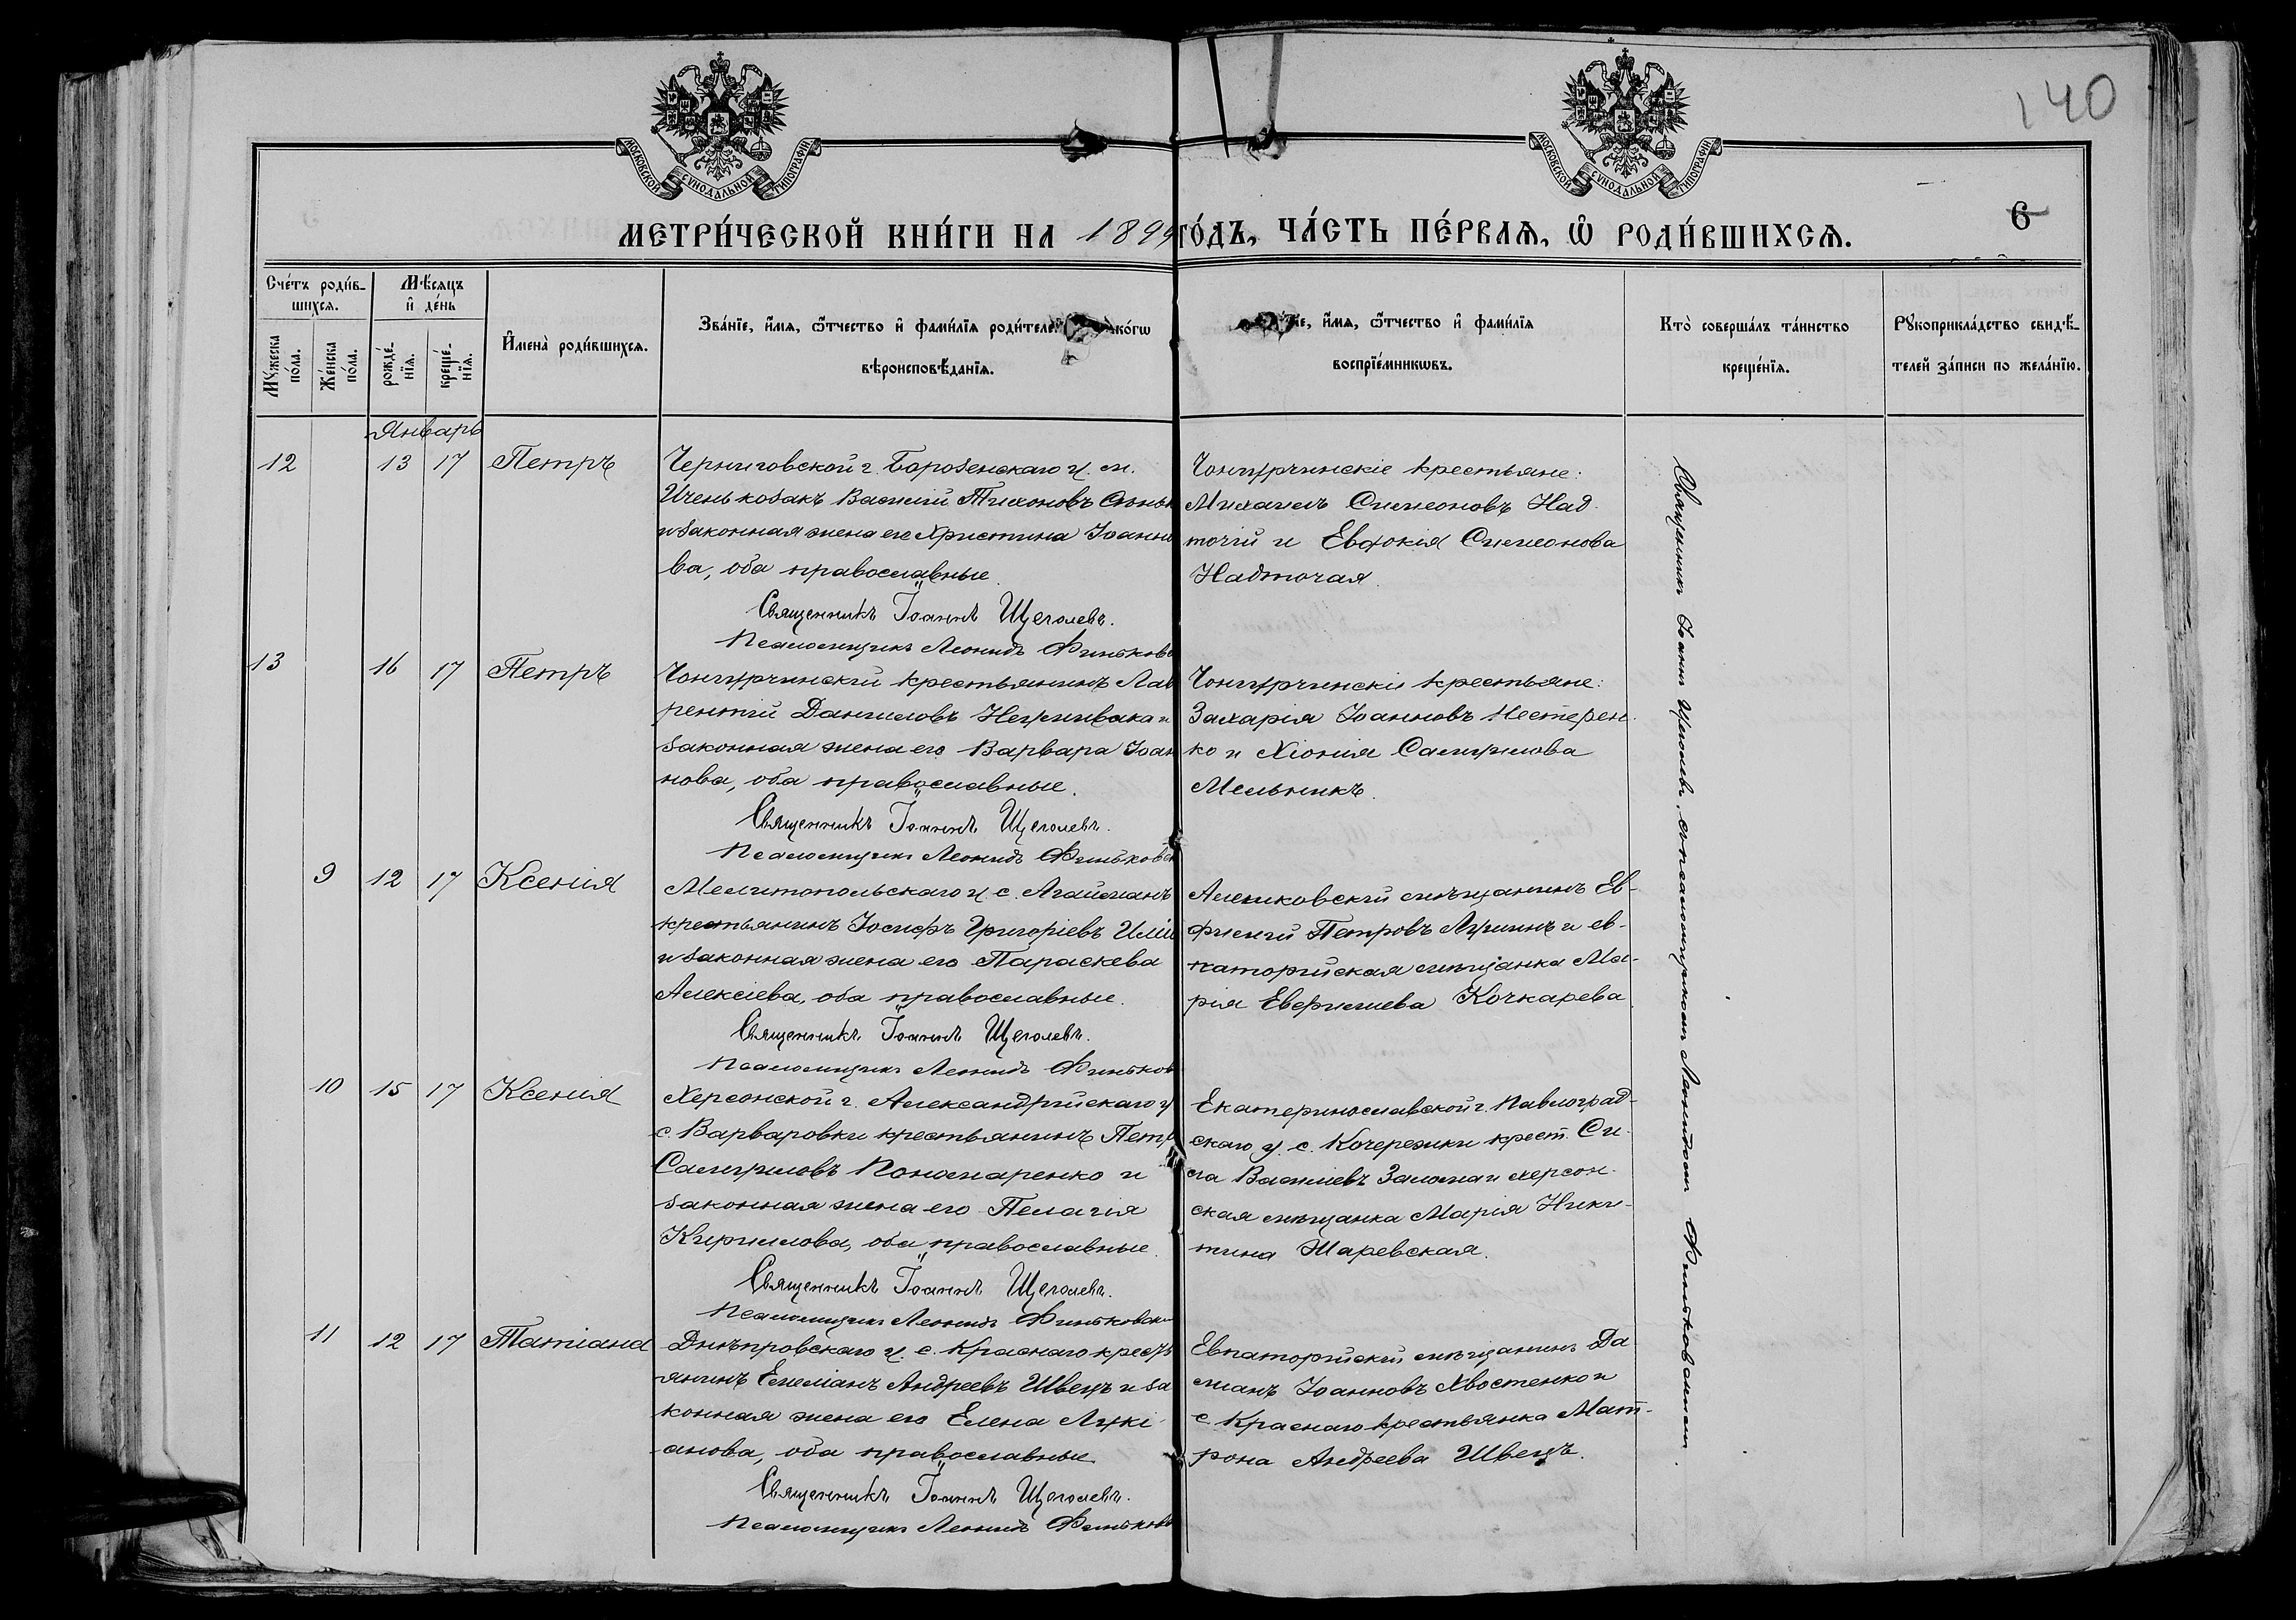 140
МОСКОВСКОЙ СУНОДАЛЬНОЙ ТИПОГРАФІИ
МОСКОВСКОЙ СУНОДАЛЬНОЙ ТИПОГРАФІИ
МЕТРИ́ЧЕСКОЙ КНИ́ГИ НА 1899 ГО́ДЪ, ЧА́СТЬ ПЕ́РВАѦ, Ѽ РОДИ́ВШИХСѦ.
6
Сче́тъ роди́в-
шихсѧ.
Мꙋ́жеска по́ла.
Же́нска по́ла.
Мѣ́сѧцъ
и҆ де́нь
рожде́-
нїѧ.
креще́-
нїѧ.
И҆мена̀ роди́вшихсѧ.
Зва́нїе, и҆́мѧ, ѻ҆́тчество и҆ фами́лїѧ роди́телей, ко́гѡ
вѣроисповѣ́данїѧ.
и҆́мѧ, ѻ҆́тчество и҆ фами́лїѧ
воспрїе́мникѡвъ.
Кто̀ соверша́лъ та́инство
креще́нїѧ.
Рꙋкоприкла́дство свидѣ́-
телей за́писи по жела́нїю.
Январь
12 13 17 Петръ
Черниговской г. Борзенскаго у. м.
Ичень козакъ Василій Тихоновъ
и законная жена его Христина Іоанно
ва, оба православные.
Священникъ Іоаннъ Щеголевъ.
Псаломщикъ Леонидъ Финьковс
Чонгурчинскіе крестьяне:
Михаилъ Симеоновъ Над-
точій и Евдокія Симеонова
Надточая.
13 16 17 Петръ
Чонгурчинскій крестьянинъ Лав
рентій Даниловъ Неживака и
законная жена его Варвара Іоан
нова, оба православные.
Священникъ Іоаннъ Щеголевъ.
Псаломщикъ Леонидъ Финьковск
Чонгурчинскіе крестьяне:
Захарія Іоанновъ Нестерен-
ко и Хіонія Самуилова
Мельникъ.
9 12 17 Ксенія
Мелитопольскаго у. с. Агайманъ
крестьянинъ Іосифъ Григоріевъ
и законная жена его Параскева
Алексіева, оба православные.
Священникъ Іоаннъ Щеголевъ.
Псаломщикъ Леонидъ Финьков
Алешковскій мѣщанинъ Ев-
фимій Петровъ Лушинъ и ев-
паторійская мѣщанка Ма-
рія Евфиміева Кочкарева
10 15 17 Ксенія
Херсонской г. Александрійскаго у
с. Варваровки крестьянинъ Петр
Самуиловъ Пономаренко и
законная жена его Пелагія
Кириллова, оба православные.
Священникъ Іоаннъ Щеголевъ.
Псаломщикъ Леонидъ Финьковск
Екатеринославской г. Павлоград-
скаго у. с. Кочережки крест. Си-
ла Василіевъ Залома и херсон-
ская мѣщанка Марія Ники-
тина Шаревская.
11 12 17 Татіана
Днѣпровскаго у. с. Краснаго кресть
янинъ Емеліанъ Андреевъ Швецъ и за
конная жена его Елена Лукі-
анова, оба православные.
Священникъ Іоаннъ Щеголевъ.
Псаломщикъ Леонидъ Финьковс
Евпаторійскій мѣщанинъ Да
міанъ Іоанновъ Хвостенко и
с. Краснаго крестьянка Мат-
рона Андреева Швецъ.
Священникъ Іоаннъ Щеголевъ, съ псаломщикомъ Леонидомъ Финьковскимъ.